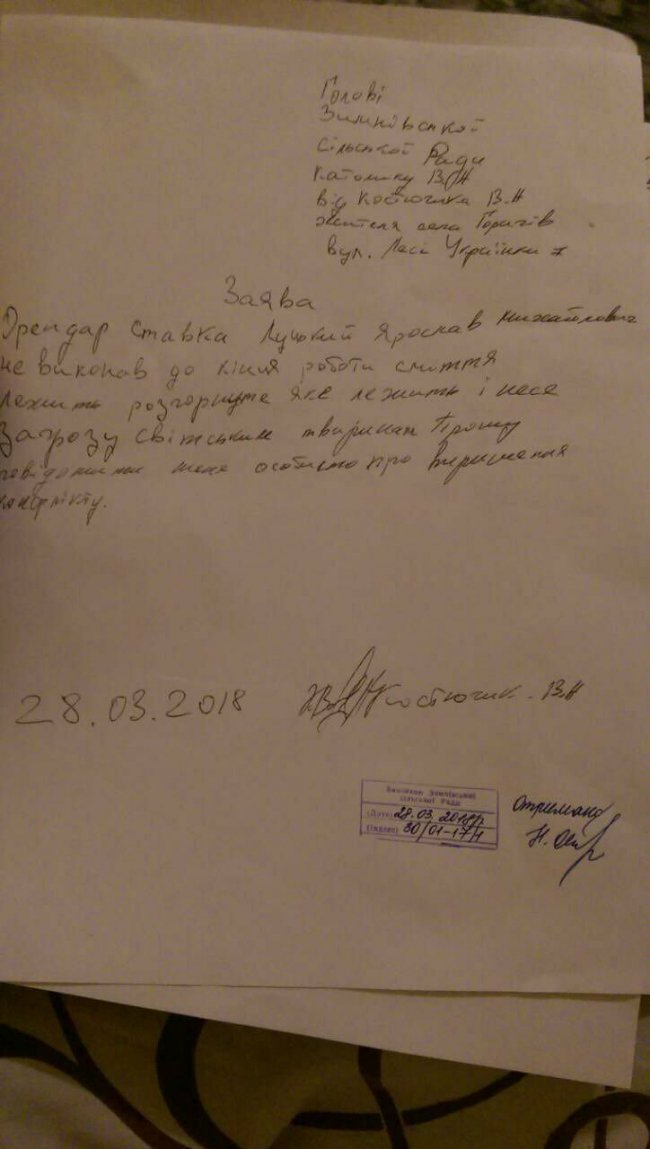 Голові
Зимнівської
сільської Ради
Католику В.А
від Костючика В.А
жителя села Горичів
вул. Лесі Українки 7
Заява
Орендар Ставка Луцький Ярослав Михайлович
не виконав до кінця роботи сміття
лежить розгорнуте яке лежить і несе
Загрозу свійським тваринам Прошу
повідомити мене особисто про вирішення
конфлікту.
28.03.2018 Костючик. В.А
Виконком Зимнівської
сільської Ради
(Дата) 28.03.2018р
(Індекс) 30/01-17/1
Отримано
Н.